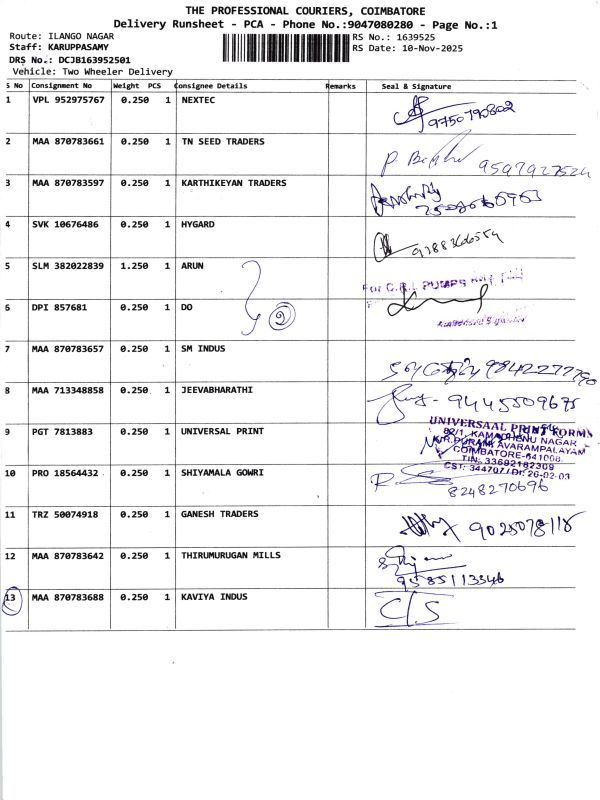 THE PROFESSIONAL COURIERS, COIMBATORE
Delivery Runsheet - PCA - Phone No.:9047080280 - Page No.:1
Route: ILANGO NAGAR RS No.: 1639525
Staff: KARUPPASAMY RS Date: 10-Nov-2025
DRS No.: DCJB163952501
Vehicle: Two Wheeler Delivery
S No Consignment No Weight PCS Consignee Details Remarks Seal & Signature
1 VPL 952975767 0.250 1 NEXTEC 9750790802
2 MAA 870783661 0.250 1 TN SEED TRADERS 9597927524
3 MAA 870783597 0.250 1 KARTHIKEYAN TRADERS
4 SVK 10676486 0.250 1 HYGARD 9288366554
5 SLM 382022839 1.250 1 ARUN
For C.R.I. PUMPS
6 DPI 857681 0.250 1 DO 2
Authorised Signatory
7 MAA 870783657 0.250 1 SM INDUS 9842277790
8 MAA 713348858 0.250 1 JEEVABHARATHI 9445509675
9 PGT 7813883 0.250 1 UNIVERSAL PRINT
UNIVERSAAL PRINT FORMS
82/1, KAMADHENU NAGAR
K.R.PURAM, AVARAMPALAYAM
COIMBATORE-641006.
TIN: 33692182309
CST: 344707/Dt: 26-02-03
10 PRO 18564432 0.250 1 SHIYAMALA GOWRI 8248270696
11 TRZ 50074918 0.250 1 GANESH TRADERS 9025078118
12 MAA 870783642 0.250 1 THIRUMURUGAN MILLS 9585113346
13 MAA 870783688 0.250 1 KAVIYA INDUS C/S